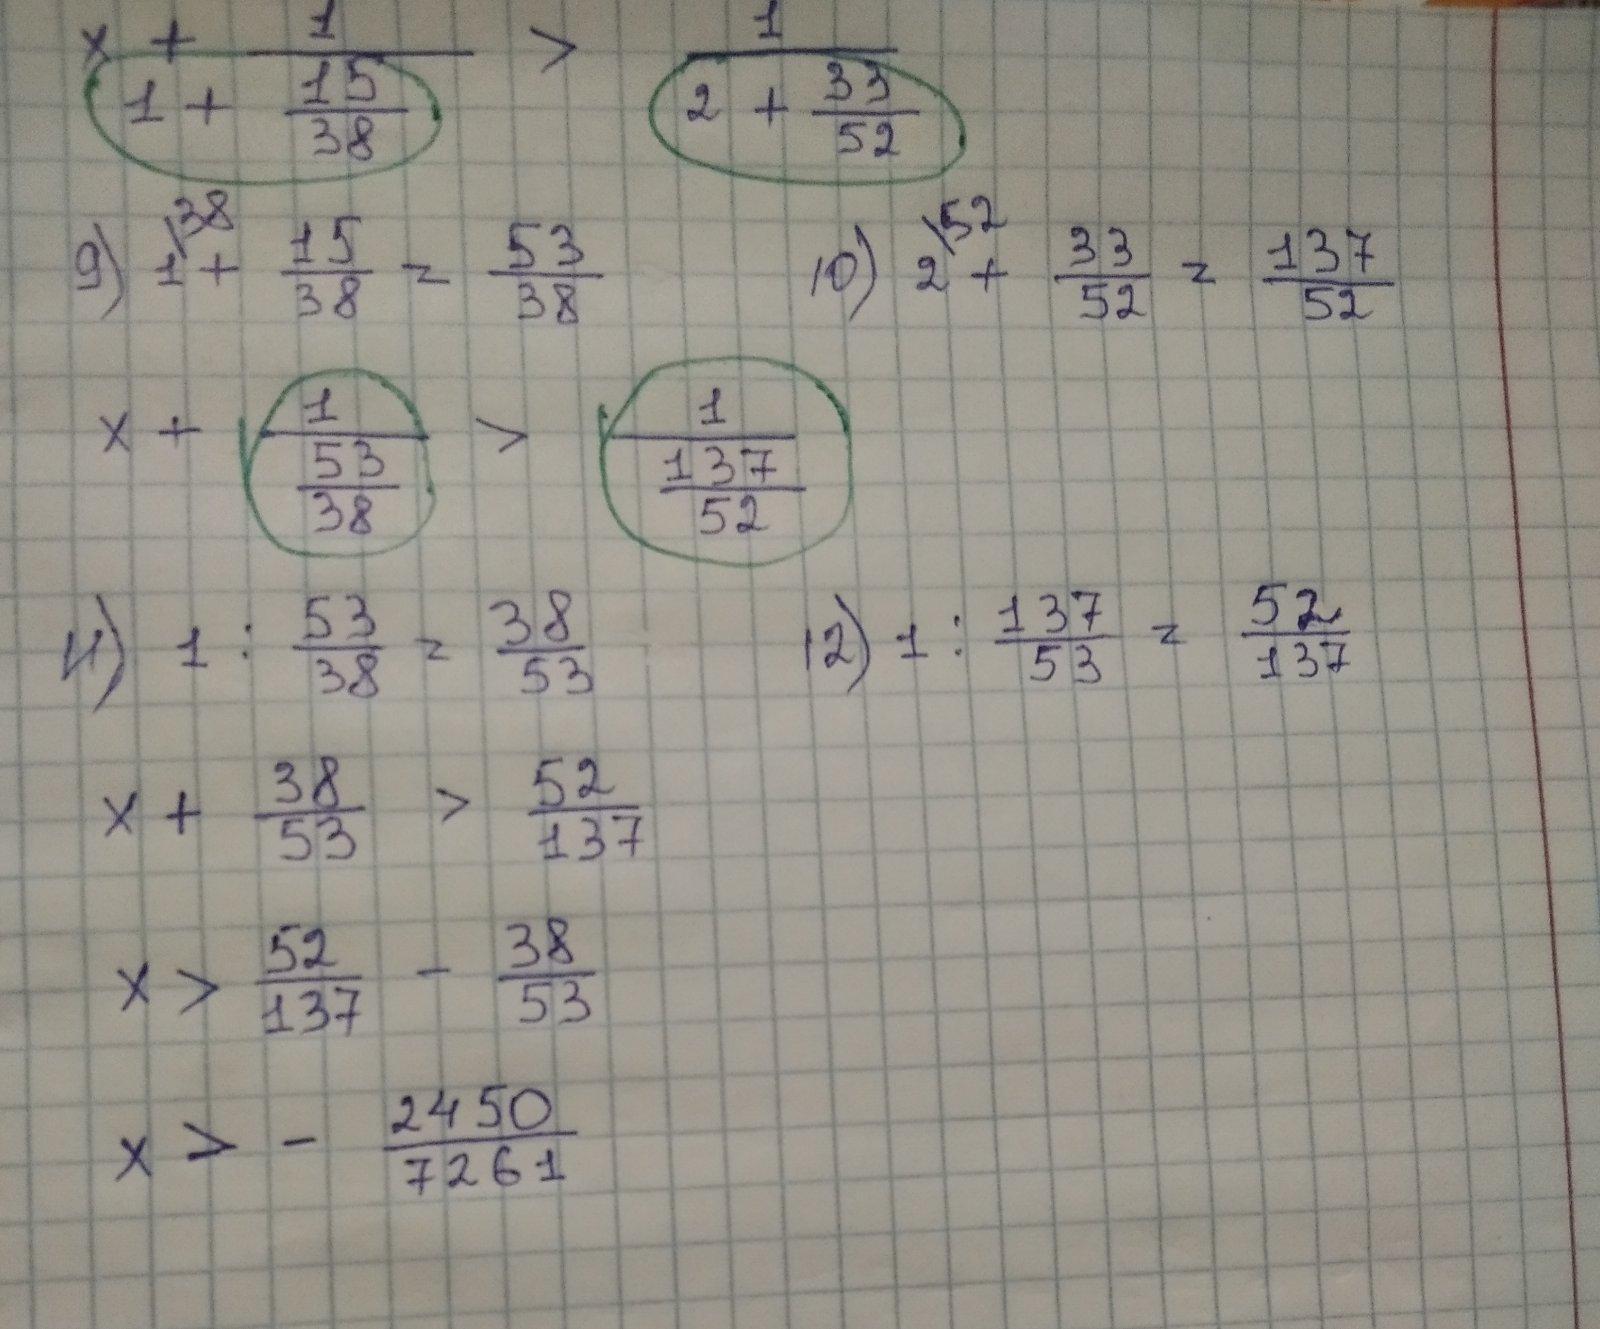 x + 1/(1 + 15/38) > 1/(2 + 33/52)
9) 1\38 + 15/38 = 53/38 10) 2\52 + 33/52 = 137/52
x + 1/(53/38) > 1/(137/52)
11) 1 : 53/38 = 38/53 12) 1 : 137/53 = 52/137
x + 38/53 > 52/137
x > 52/137 - 38/53
x > - 2450/7261